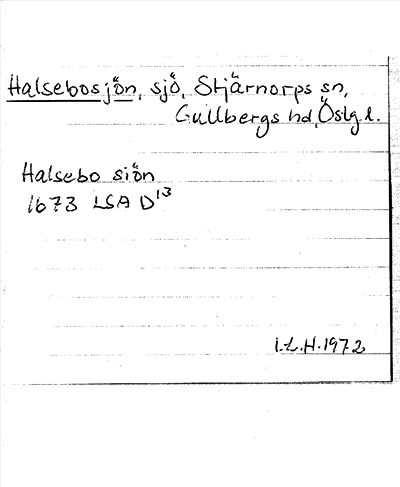 Halsebosjön, sjö, Stjärnorps sn,
Gullbergs hd, Östg.l.
Halsebo siön
1673 LSA D¹³
I.L.H. 1972